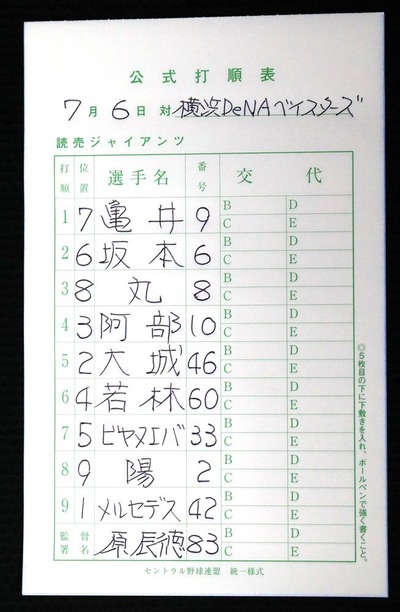 公式打順表
7月6日 対 横浜DeNAベイスターズ
読売ジャイアンツ
打順 位置 選手名 番号 交代
1 7 亀井 9 B D
C E
2 6 坂本 6 B D
C E
3 8 丸 8 B D
C E
4 3 阿部 10 B D
C E
5 2 大城 46 B D
C E
6 4 若林 60 B D
C E
7 5 ビヤヌエバ 33 B D
C E
8 9 陽 2 B D
C E
9 1 メルセデス 42 B D
C E
監督署名 原辰徳 83 B D
C E
◎5枚目の下に下敷きを入れ、ボールペンで強く書くこと。
セントラル野球連盟 統一様式